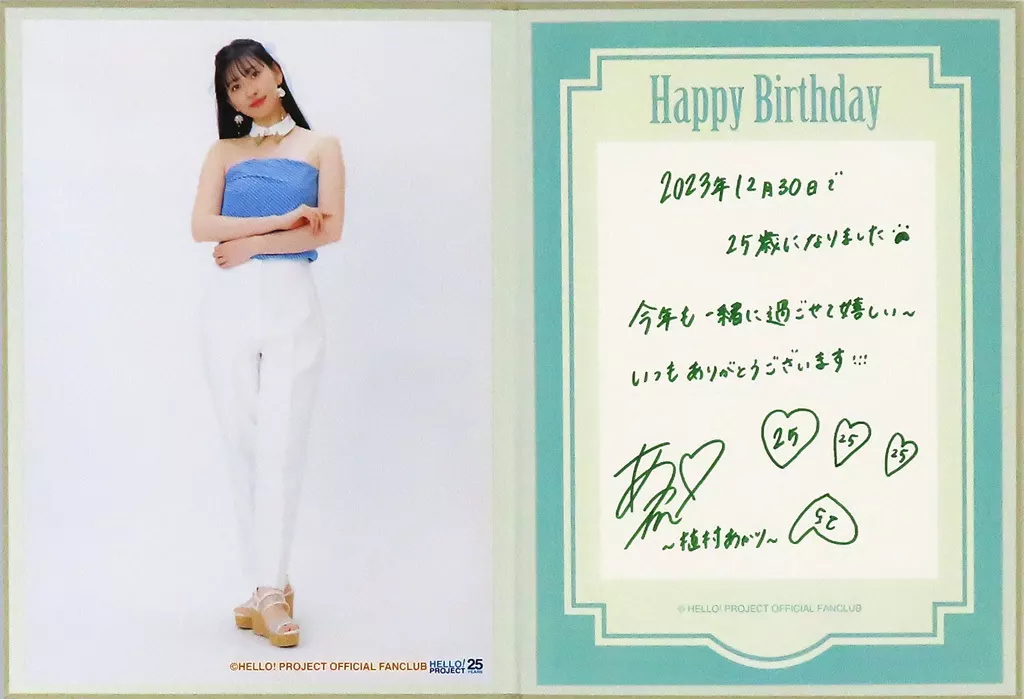 ©HELLO! PROJECT OFFICIAL FANCLUB
HELLO! PROJECT 25 YEARS
Happy Birthday
2023年12月30日で
25歳になりました
今年も一緒に過ごせて嬉しい~
いつもありがとうございます!!!
25
25
25
~植村あかり~
25
© HELLO! PROJECT OFFICIAL FANCLUB